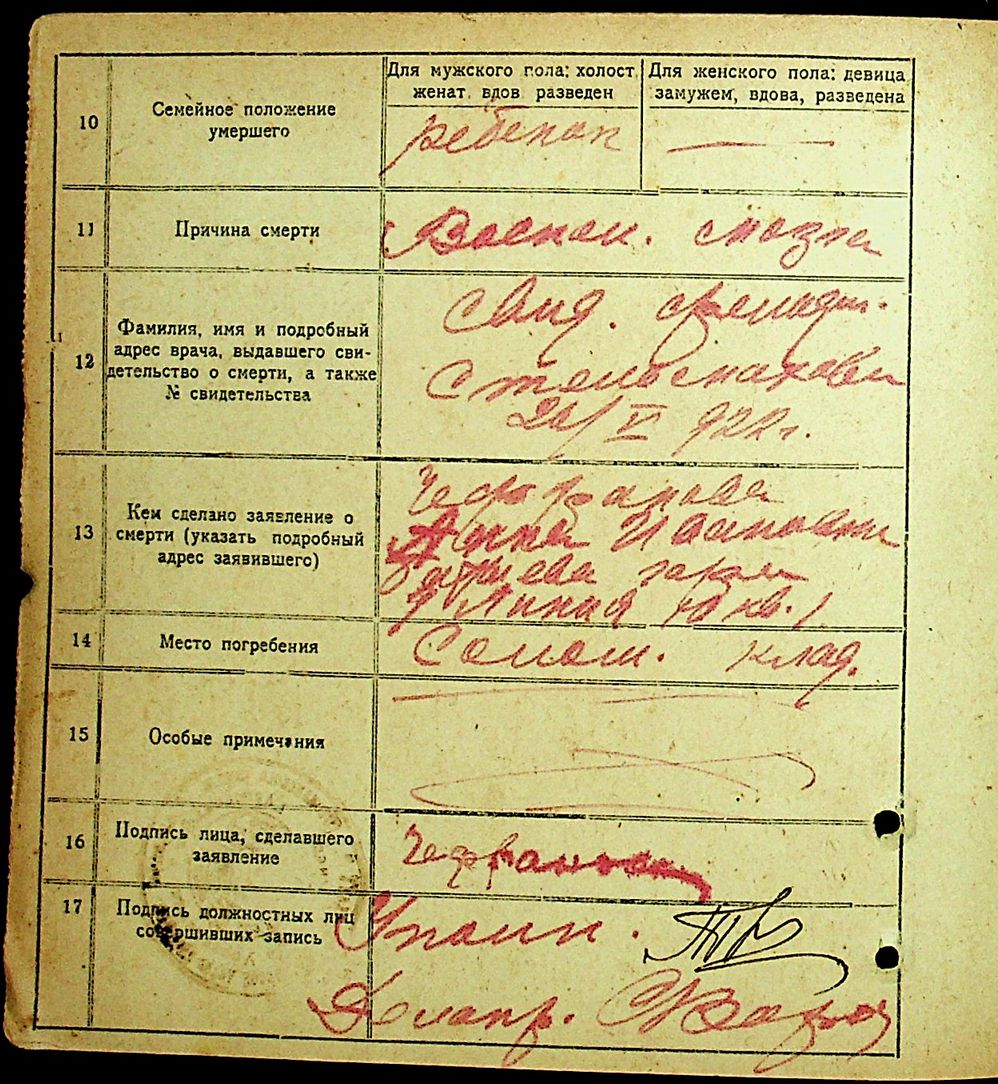 10
Семейное положение
умершего
Для мужского пола: холост
женат вдов разведен
Для женского пола: девица
замужем, вдова, разведена
ребенок
11
Причина смерти
Воспал. мозга
12
Фамилия, имя и подробный
адрес врача, выдавшего сви-
детельство о смерти, а также
№ свидетельства
922 г.
13
Кем сделано заявление о
смерти (указать подробный
адрес заявившего)
Чефранова
Анна Ивановна
9 Линия 10 кв. 1
14
Место погребения
клад.
15
Особые примечания
16
Подпись лица, сделавшего
заявление
Чефранова
17
Подпись должностных лиц
совершивших запись
Уполн.
Делопр.